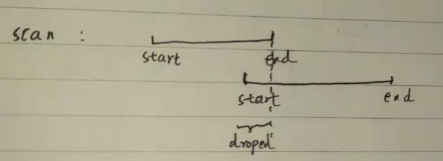 scan :
start end
start end
droped